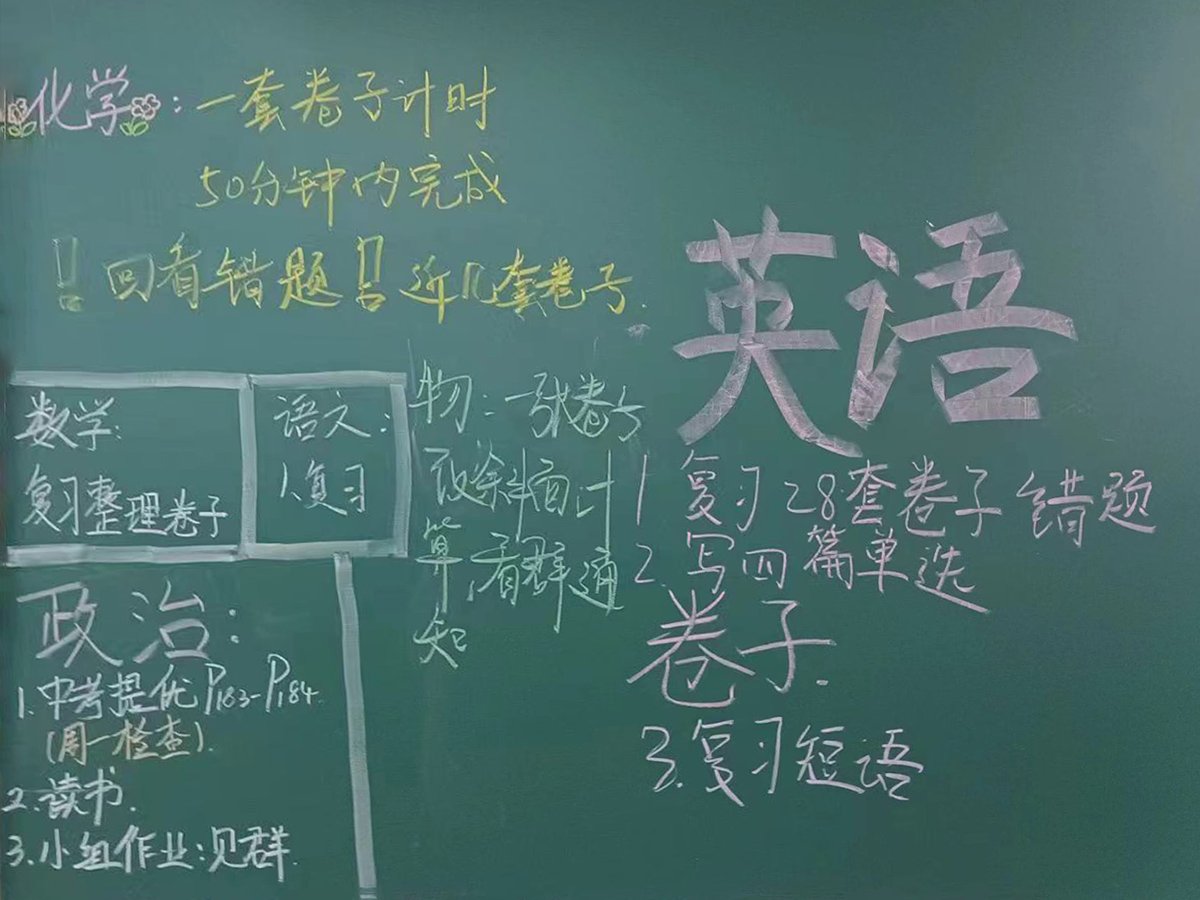 化学：一套卷子计时
50分钟内完成
！回看错题！近几套卷子.
数学：
复习整理卷子
语文：
1.复习
物：一张卷子
計
算，看群通
知
政治：
1.中考提优P183-P184.
（周一检查）.
2.读书.
3.小组作业：见群.
英语
1 复习28套卷子错题
2.写四篇单选
卷子.
3.复习短语